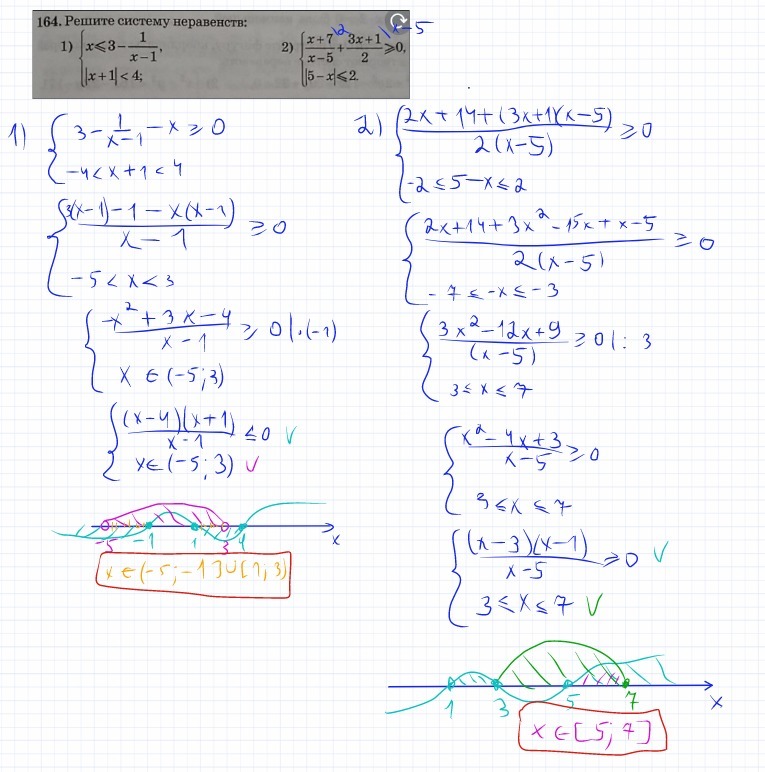 164. Решите систему неравенств:
1) { x ⩽ 3 − 1/(x−1),
|x+1| < 4;
2) { (x+7)/(x−5) + (3x+1)/2 ⩾ 0,
|5−x| ⩽ 2.
\2 \x−5
1) { 3 − 1/(x−1) − x ⩾ 0
−4 < x + 1 < 4
{ (3(x−1) − 1 − x(x−1))/(x−1) ⩾ 0
−5 < x < 3
{ (−x² + 3x − 4)/(x−1) ⩾ 0 |·(−1)
x ∈ (−5; 3)
{ (x−4)(x+1)/(x−1) ≤ 0 V
x ∈ (−5; 3) V
−5 −1 1 3 4 x
x ∈ (−5; −1] ∪ [1; 3)
2) { (2x + 14 + (3x+1)(x−5))/(2(x−5)) ⩾ 0
−2 ≤ 5 − x ≤ 2
{ (2x + 14 + 3x² − 15x + x − 5)/(2(x−5)) ⩾ 0
−7 ≤ −x ≤ −3
{ (3x² − 12x + 9)/(x−5) ⩾ 0 |: 3
3 ≤ x ≤ 7
{ (x² − 4x + 3)/(x−5) ⩾ 0
3 ≤ x ≤ 7
{ (x−3)(x−1)/(x−5) ⩾ 0 V
3 ≤ x ≤ 7 V
1 3 5 7 x
x ∈ [5; 7]